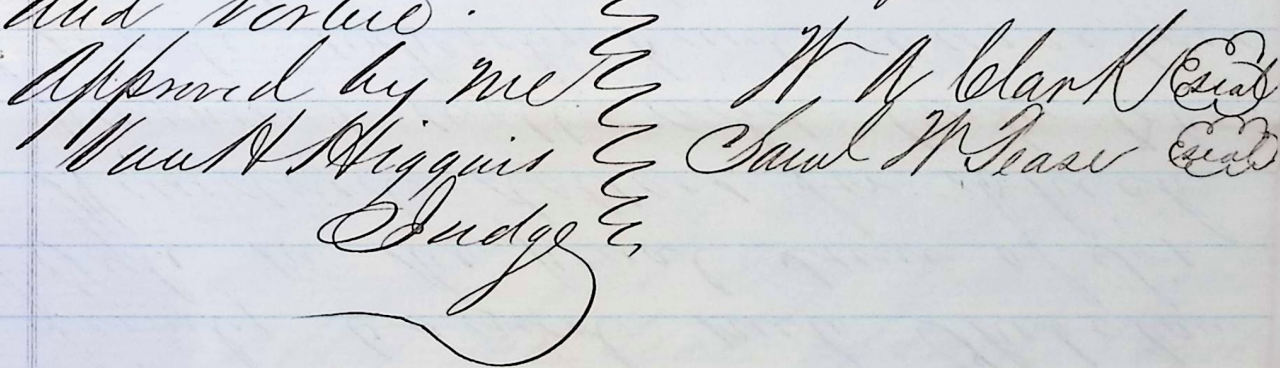 and virtue.
Approved by me
Van H Higgins
Judge
W A Clark Seal
Saml W Tease Seal